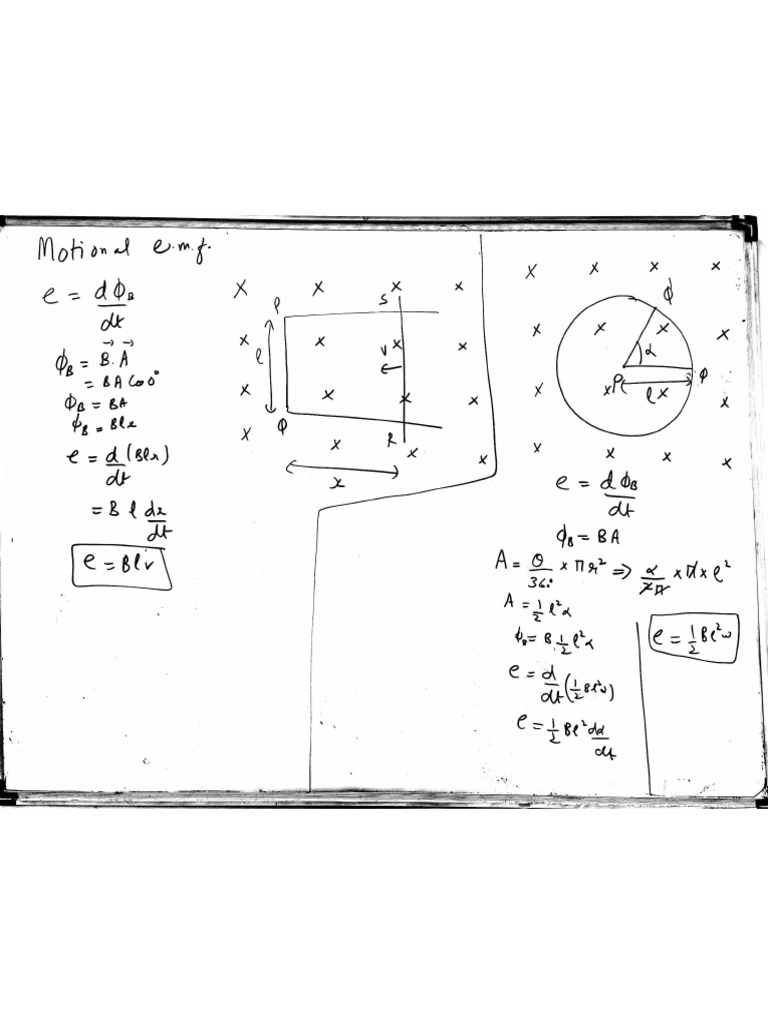 Motional e.m.f.
e = dΦB/dt
ΦB = B⃗.A⃗
= BA Cos0°
ΦB = BA
ΦB = Blx
e = d/dt (Blx)
= B l dx/dt
e = Blv
x x x x
P S
x x x x
l v
x x x x
Q R
x x x
x
x x x x
Q
x x x x
α
x P x Q
l x
x x x x
e = dΦB/dt
ΦB = BA
A = θ/360° × πr² ⇒ α/2π × π × l²
A = 1/2 l²α
ΦB = B.1/2 l²α
e = d/dt (1/2 Bl²ω)
e = 1/2 Bl² dα/dt
e = 1/2 Bl²ω